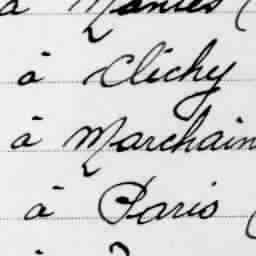 à Mantes (
à Clichy
à Marchain
à Paris (